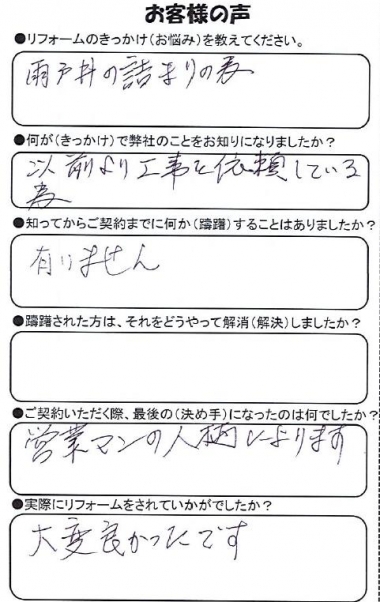 お客様の声
●リフォームのきっかけ(お悩み)を教えてください。
雨戸井の詰まりの為
●何が(きっかけ)で弊社のことをお知りになりましたか?
以前より工事を依頼している
為
●知ってからご契約までに何か(躊躇)することはありましたか?
有りません
●躊躇された方は、それをどうやって解消(解決)しましたか?
●ご契約いただく際、最後の(決め手)になったのは何でしたか?
営業マンの人柄によります
●実際にリフォームをされていかがでしたか?
大変良かったです